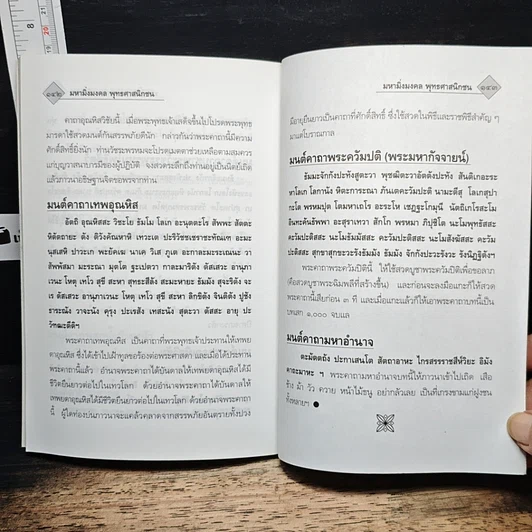 ๑๔๒ มหามิ่งมงคล พุทธศาสนิกชน
คาถาอุณหิสวิชัยนี้ เมื่อพระพุทธเจ้าเสด็จขึ้นไปโปรดพระพุทธ
มารดาใช้สวดมนต์กันสรรพภัยดีนัก กล่าวกันว่าพระคาถานี้มีความ
ศักดิ์สิทธิ์ยิ่งนัก
แก่บุญวาสนาบารมีของผู้ปฏิบัติ จงสวดระลึกถึงท่านอยู่เป็นนิตย์เถิด
แล้วภาวนาอธิษฐานจิตขอพรจากท่าน
มนต์คาถาเทพอุณหิส
อัตถิ อุณหิสสะ วิชะโย ธัมโม โลเก อะนุตตะโร สัพพะ สัตตะ
หิตัตถายะ ตัง ตวังคัณหาหิ เทวะเต ปะริวัชชะเยราชะทัณเฑ อะมะ
นุสเสหิ ปาวะเก พยัคเฆ นาเค วิเส ภูเต อะกาละมะระเณนะ วา
สัพพัสมา มะระณา มุตโต ฐะเปตวา กาละมาริตัง ตัสเสวะ อานุภา
เวนะ โหตุ เทโว สุขี สะทา สุทธะสีลัง สะมะทายะ ธัมมัง สุจะริตัง จะ
เร ตัสเสวะ อานุภาเวนะ โหตุ เทโว สุขี สะทา ลิกขิตัง จินติตัง ปูชัง
ธาระณัง วาจะนัง คะรุง ปะเรสัง เทสะนัง สุตะวา ตัสสะ อายุ ปะ
วัฑฒะตีติฯ
พระคาถาเทพอุณหิส เป็นคาถาที่พระพุทธเจ้าประทานให้เทพย
ดาอุณหิส ซึ่งได้เข้าไปเฝ้าทูลขอร้องต่อพระศาสดา และเมื่อได้ประทาน
พระคาถานี้แล้ว อำนาจพระคาถาได้บันดาลให้เทพยดาอุณหิสได้มี
ชีวิตยืนยาวต่อไปในเทวโลก ด้วยอำนาจพระคาถาได้บันดาลให้
เทพยดาอุณหิสได้มีชีวิตยืนยาวต่อไปในเทวโลก ด้วยอำนาจพระคาถา
นี้ ผู้ใดท่องบ่นภาวนาจะแคล้วคลาดจากสรรพภัยอันตรายทั้งปวง
มหามิ่งมงคล พุทธศาสนิกชน ๑๔๓
มีอายุยืนยาวเป็นคาถาที่ศักดิ์สิทธิ์ ซึ่งใช้สวดในพิธีและราชพิธีสำคัญ ๆ
มาแต่โบราณกาล
มนต์คาถาพระควัมปติ (พระมหากัจจายน์)
ธัมมะจักกังปะทังสุตะวา พุชฌิตะวาอัตตังปะทัง สันติเกอะระ
หาโลเก โลกานัง หิตะการะณา ภันเตคะวัมปะตินามะ นามะตีสุ โลเกสุปา
กะโต พรหมปุต โตมหาเถโร อะระโห เชฏฐะโกมุนี นัตถิเถโรสะโม
อินทะคันธัพพา อะสุราเทวา สักโก พรหมา ภิปูชิโต นะโมพุทธัสสะ
คะวัมปะติสสะ นะโมธัมมัสสะ คะวัมปะติสสะ นะโมสังฆัสสะ คะวัม
ปะติสสะ สุกขาสุกขะวะรังธัมมัง ธัมมัง จักกังปะวะรังวะรัง นิฏฐิตังฯ
พระคาถาพระควัมปตินี้ ให้ใช้สวดบูชาพระควัมปติเพื่อขอลาภ
(คือสวดบูชาพระฉิมพลีที่สร้างขึ้น) และก่อนจะลงมือแกะก็ให้สวด
พระคาถานี้เสียก่อน ๓ ที และเมื่อแกะแล้วก็ให้เอาพระคาถาบทนี้เป็น
บทเสก ๑,๐๐๐ จบแล
มนต์คาถามหาอำนาจ
ตะมัตถถัง ปะกาเสนโต สัตถาอาหะ ไกรสรราชสีห์วิยะ อิมัง
คาถะมาหะ ฯ พระคาถามหาอำนาจบทนี้ให้ภาวนาเข้าไปเถิด เสือ
ช้าง ม้า วัว ควาย หน้าไม้ธนู อย่ากลัวเลย เป็นที่เกรงขามแก่ฝูงชน
ทั้งหลายฯ